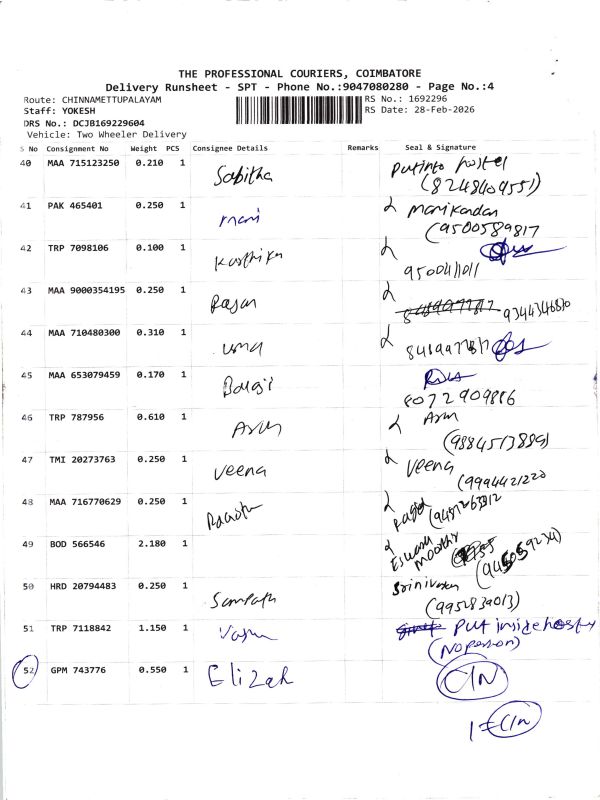 THE PROFESSIONAL COURIERS, COIMBATORE
Delivery Runsheet - SPT - Phone No.:9047080280 - Page No.:4
Route: CHINNAMETTUPALAYAM
RS No.: 1692296
Staff: YOKESH
RS Date: 28-Feb-2026
DRS No.: DCJB169229604
Vehicle: Two Wheeler Delivery
S No Consignment No Weight PCS Consignee Details Remarks Seal & Signature
40 MAA 715123250 0.210 1 Sabitha Put into hostel
(8248409551)
41 PAK 465401 0.250 1 mani Manikandan
(9500589817
42 TRP 7098106 0.100 1 Karthika
9500411011
43 MAA 9000354195 0.250 1 Rajan
9344346810
44 MAA 710480300 0.310 1 uma
45 MAA 653079459 0.170 1 Balaji
8072909816
46 TRP 787956 0.610 1 Arun Arun
47 TMI 20273763 0.250 1 Veena Veena
(9994421220
48 MAA 716770629 0.250 1
49 BOD 566546 2.180 1 Eswara moorthy
50 HRD 20794483 0.250 1 Sampath Srinivasan
(9952839013)
51 TRP 7118842 1.150 1 Put inside
(No person)
52 GPM 743776 0.550 1 Elizah C/N
1 = C/N